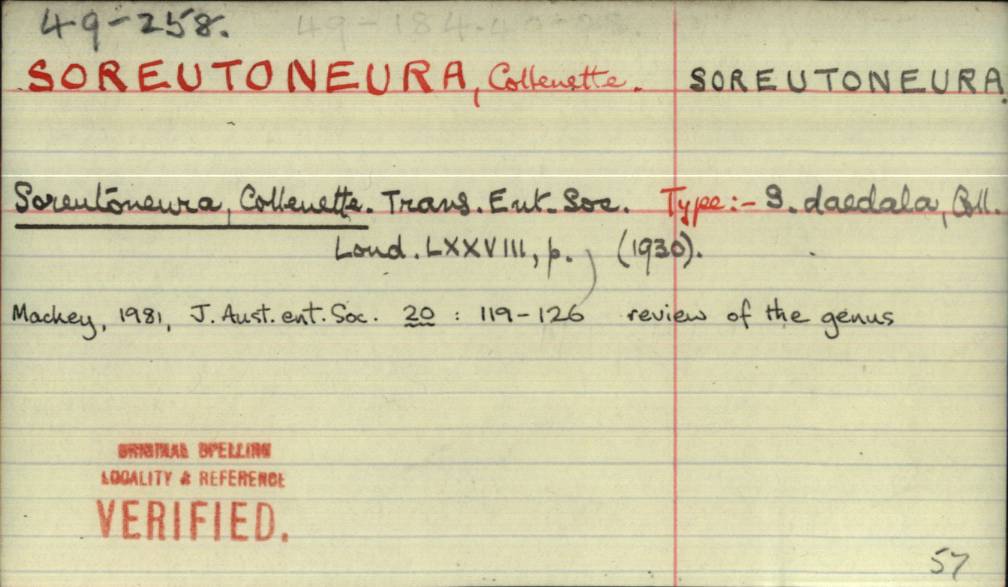 49-258.
SOREUTONEURA, Collenette. SOREUTONEURA
Soreutoneura, Collenette. Trans. Ent. Soc. Type:- S. daedala, Coll.
Lond. LXXVIII, p. , (1930).
Mackey, 1981, J. Aust. ent. Soc. 20 : 119-126 review of the genus
ORIGINAL SPELLING
LOCALITY & REFERENCE
VERIFIED.
57